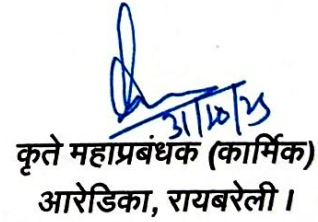 31/10/25
कृते महाप्रबंधक (कार्मिक)
आरेडिका, रायबरेली ।